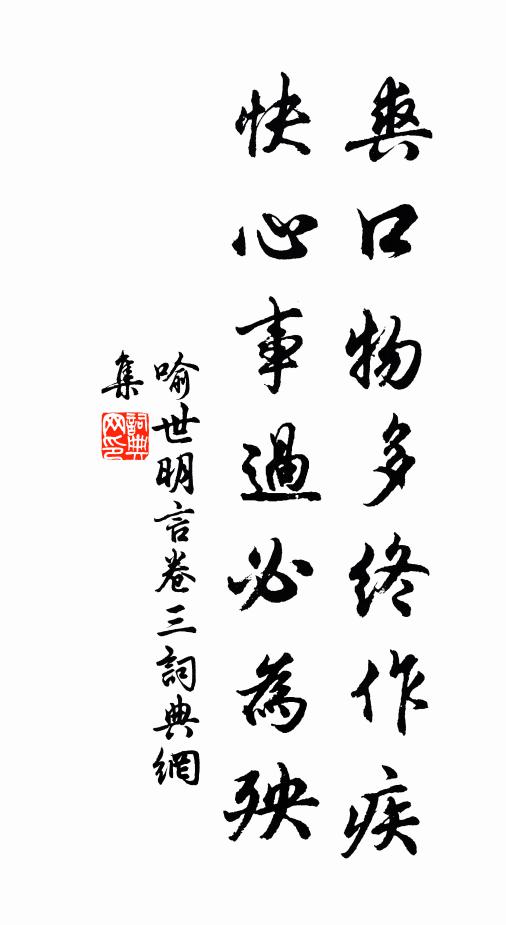 爽口物多終作疾
快心事過必為殃
喻世明言卷三詞典網
集
詞典网印